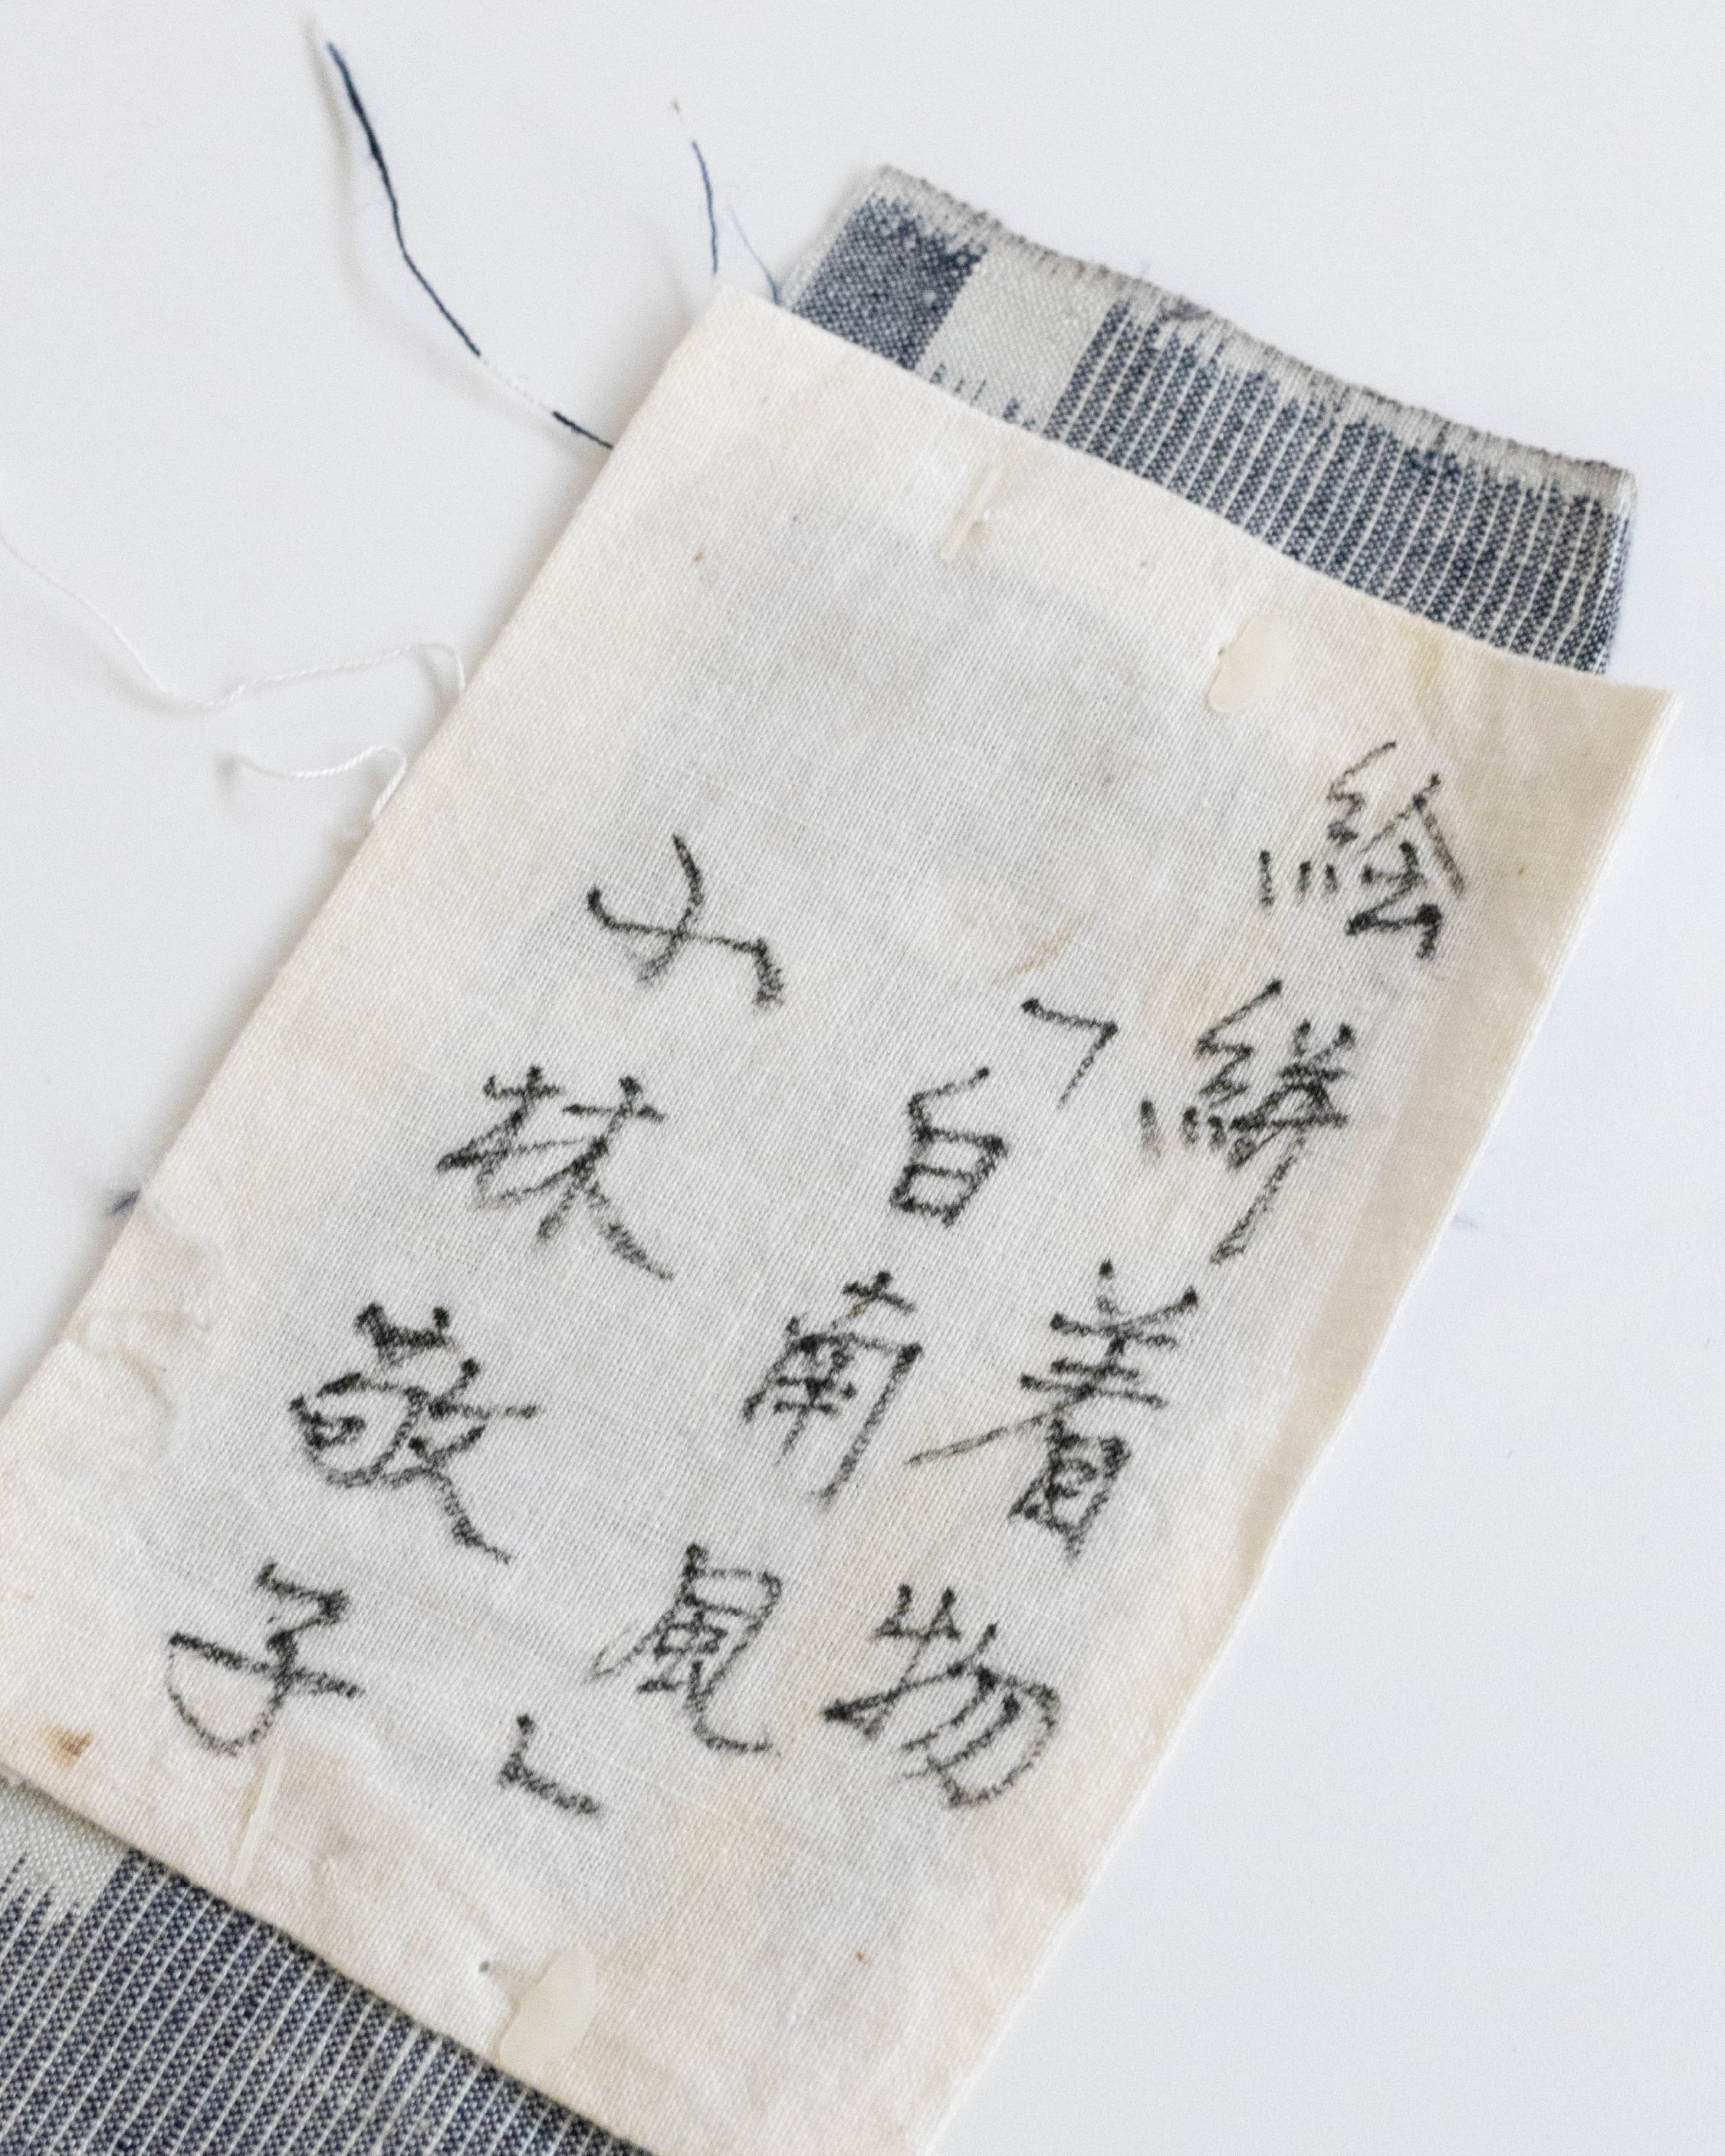 絵絣着物
「白南風」
小林敬子